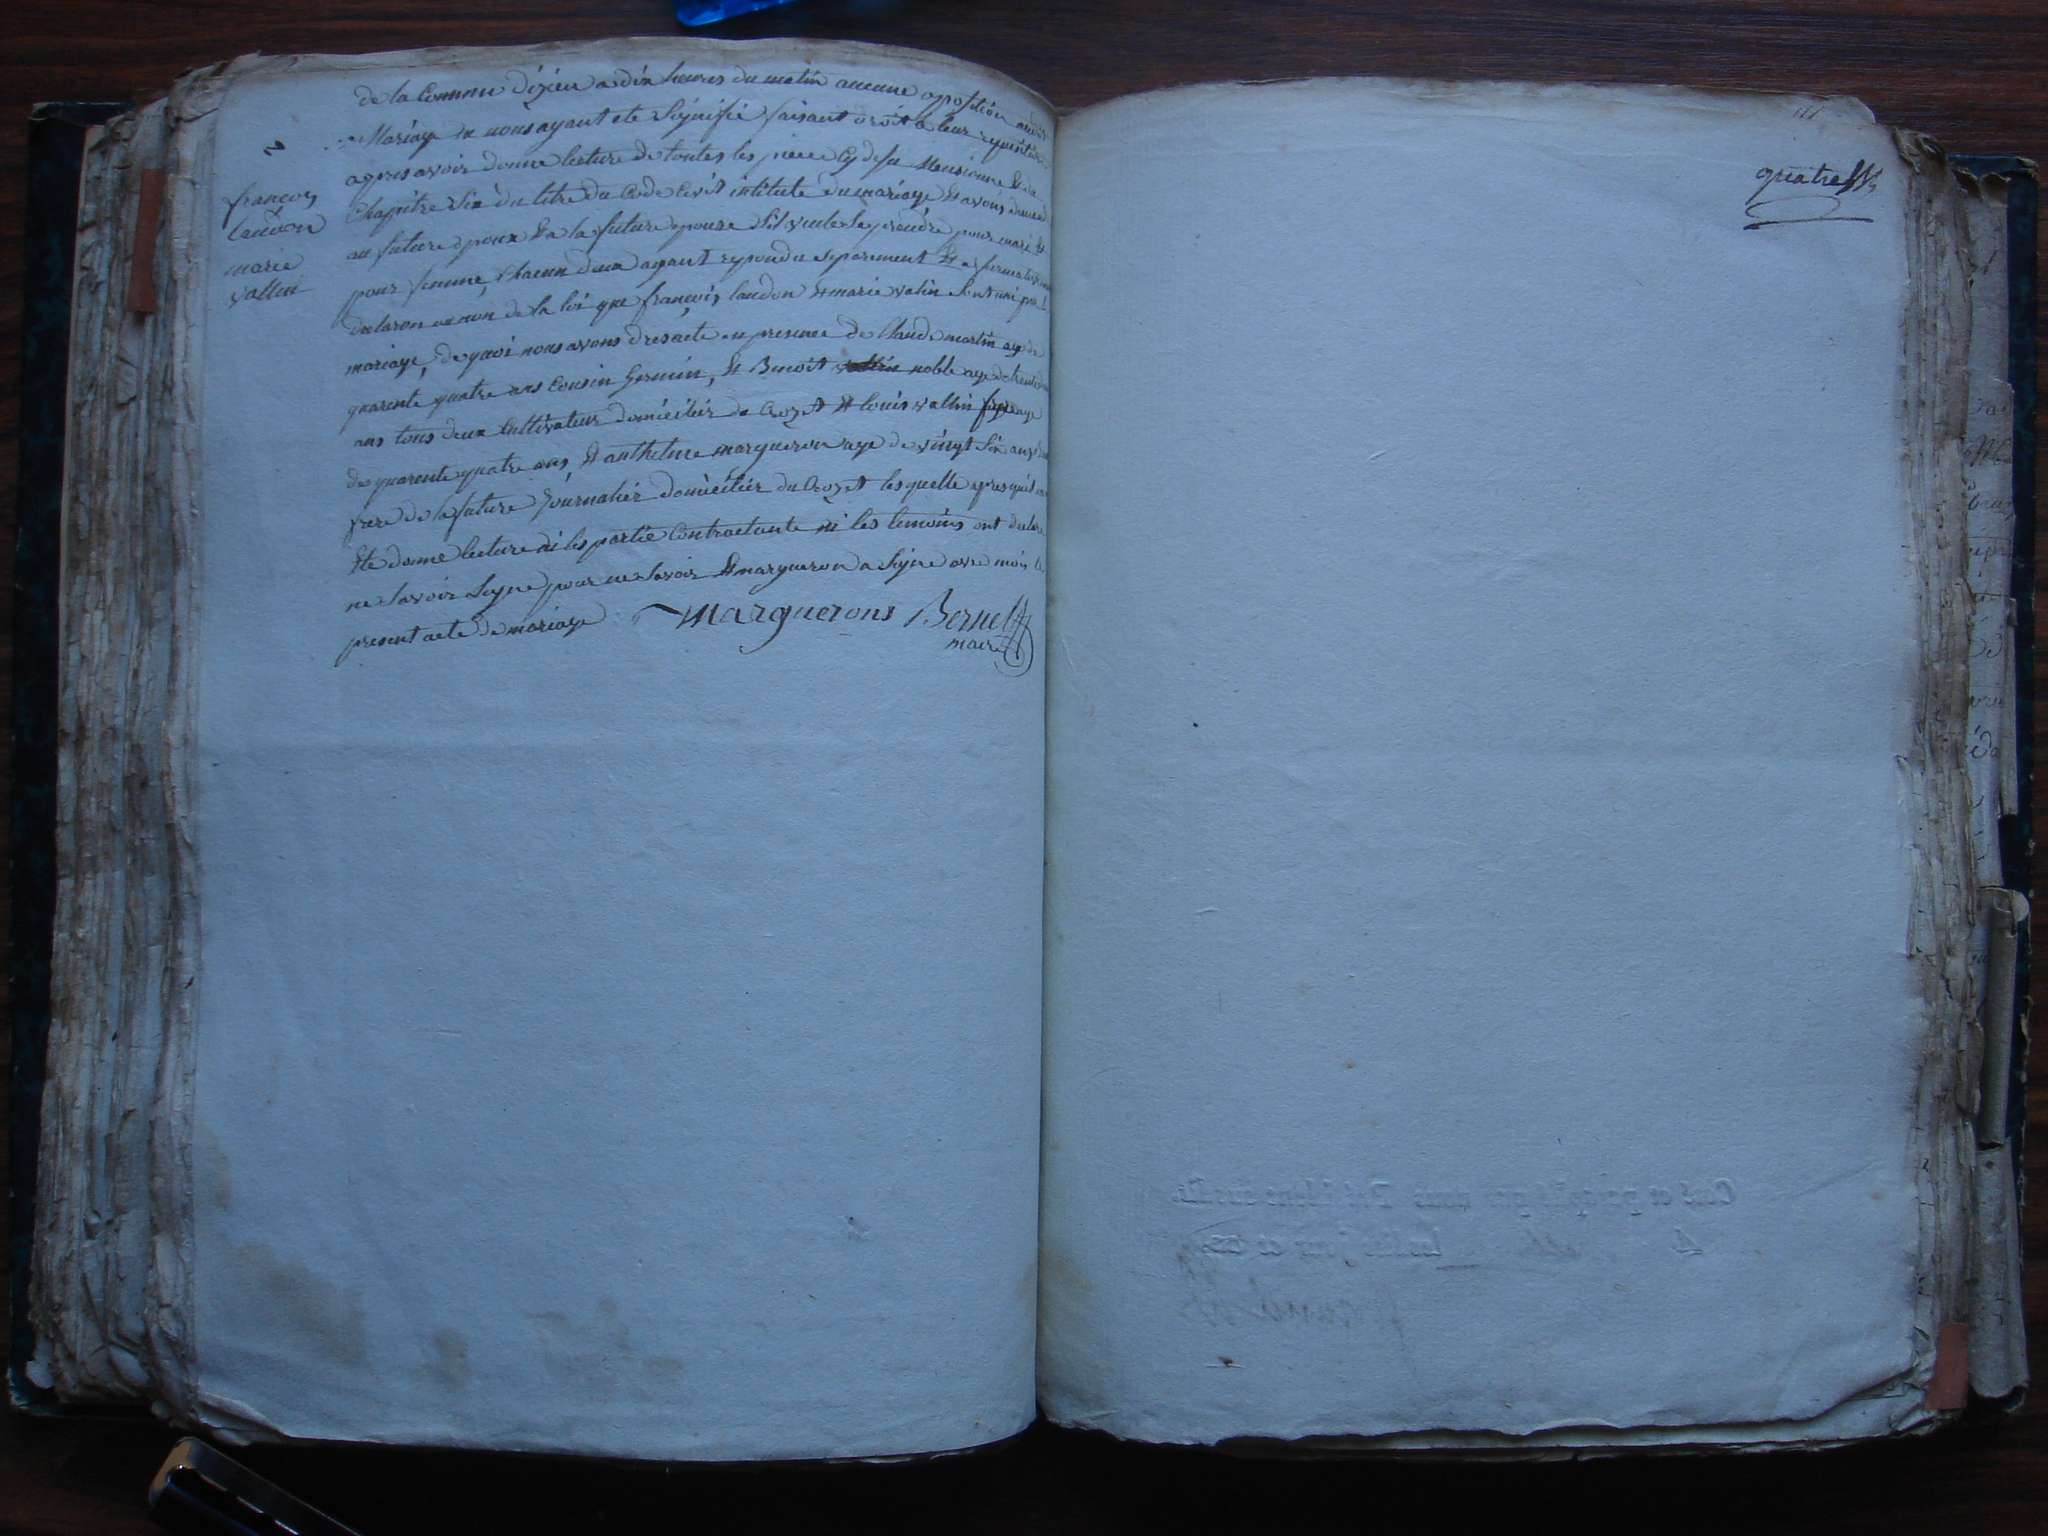 2
françois
laudon
marie
vallin
de la Commun d'izieu a dix heures du matin aucune oposition audit
Mariage ne nous ayant ete Signifié faisant droit a leur requisition
apres avoir donne lecture de toutes les piece cy desu Mensionne Et du
Chapitre Six du titre du Code Civil intitulé du mariage Et avons demand
au future epoux Et a la future epouse s'il veule se prendre pour mari Et
pour femme, Chacun deux ayant repondu separement Et afirmativement
declaron au nom de la loi que françois laudon Et marie valin sont uni par le
mariage, de quoi nous avons dresacte en presence de Claude martin age de
quarente quatre ans Cousin Germin, Et Benoit noble age de trente
ans tous deux Cultivateur domiciliér de Crozet Et louis vallin age
de quarente quatre ans, Et anthelme margueron age de vingt Six ans
frere de la future Journaliér domiciliér du Crozet les quelle apres qu'il
Ete donne lecture ni les partie Contractante ni les temoins ont declare
ne Savoir Signe pour ne Savoir Et margueron a Signe avec moi le
present acte de mariage Marguerons Bernet
maire
quatre